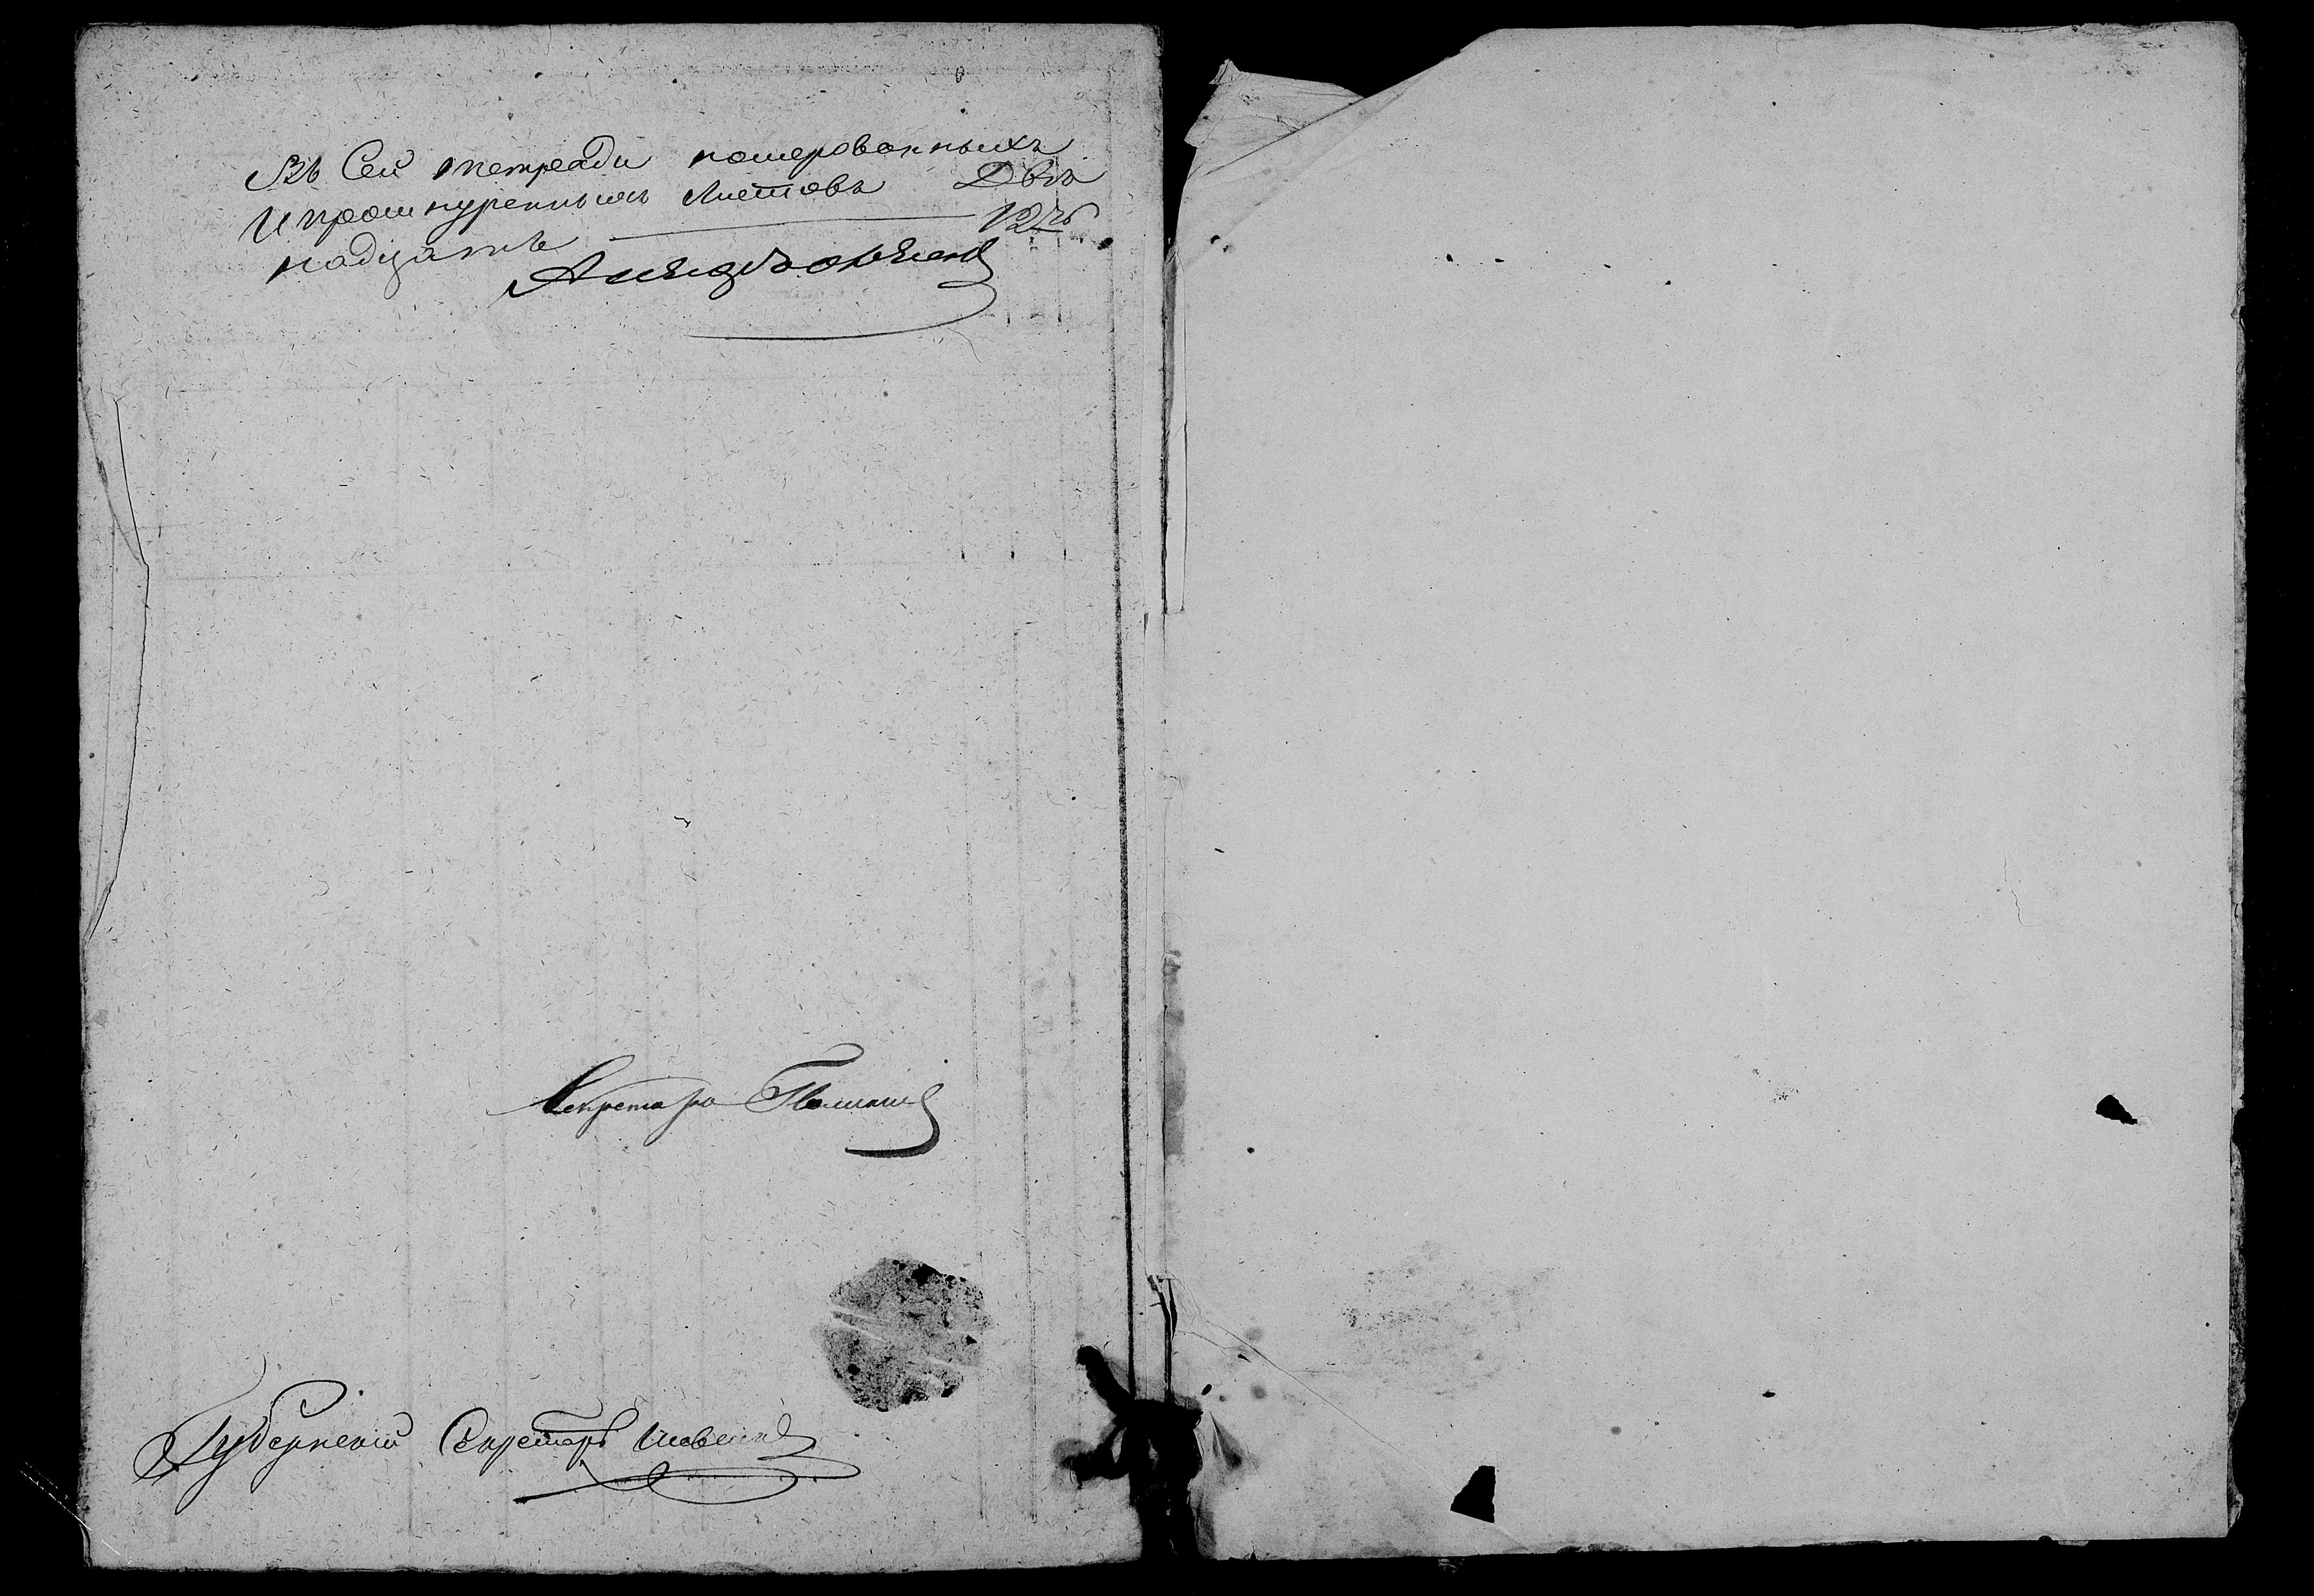 Въ Сей тетради номерованныхъ
И прошнуренныхъ Листовъ Двѣ
надцать 12ть
Секретарь
Губернскій Секретарь